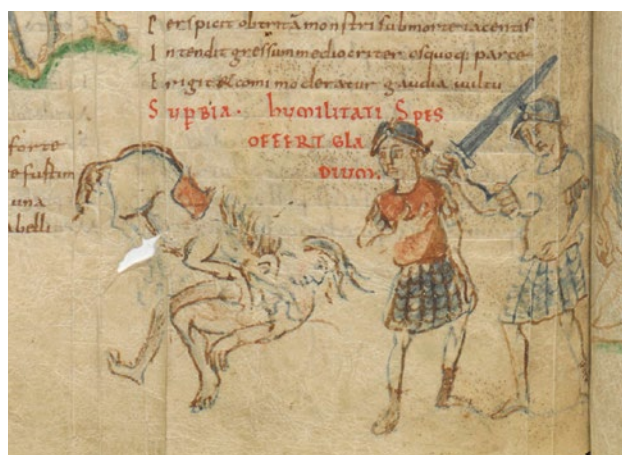 Perspicit obtritā monstri sub morte iacentis
Intendit gressum mediocriter os quoq; parce
Erigit & comi moderatur gaudia uultu
Supbia. humilitati Spes
offert gla
dium.
forte
e fustim
una
abelli